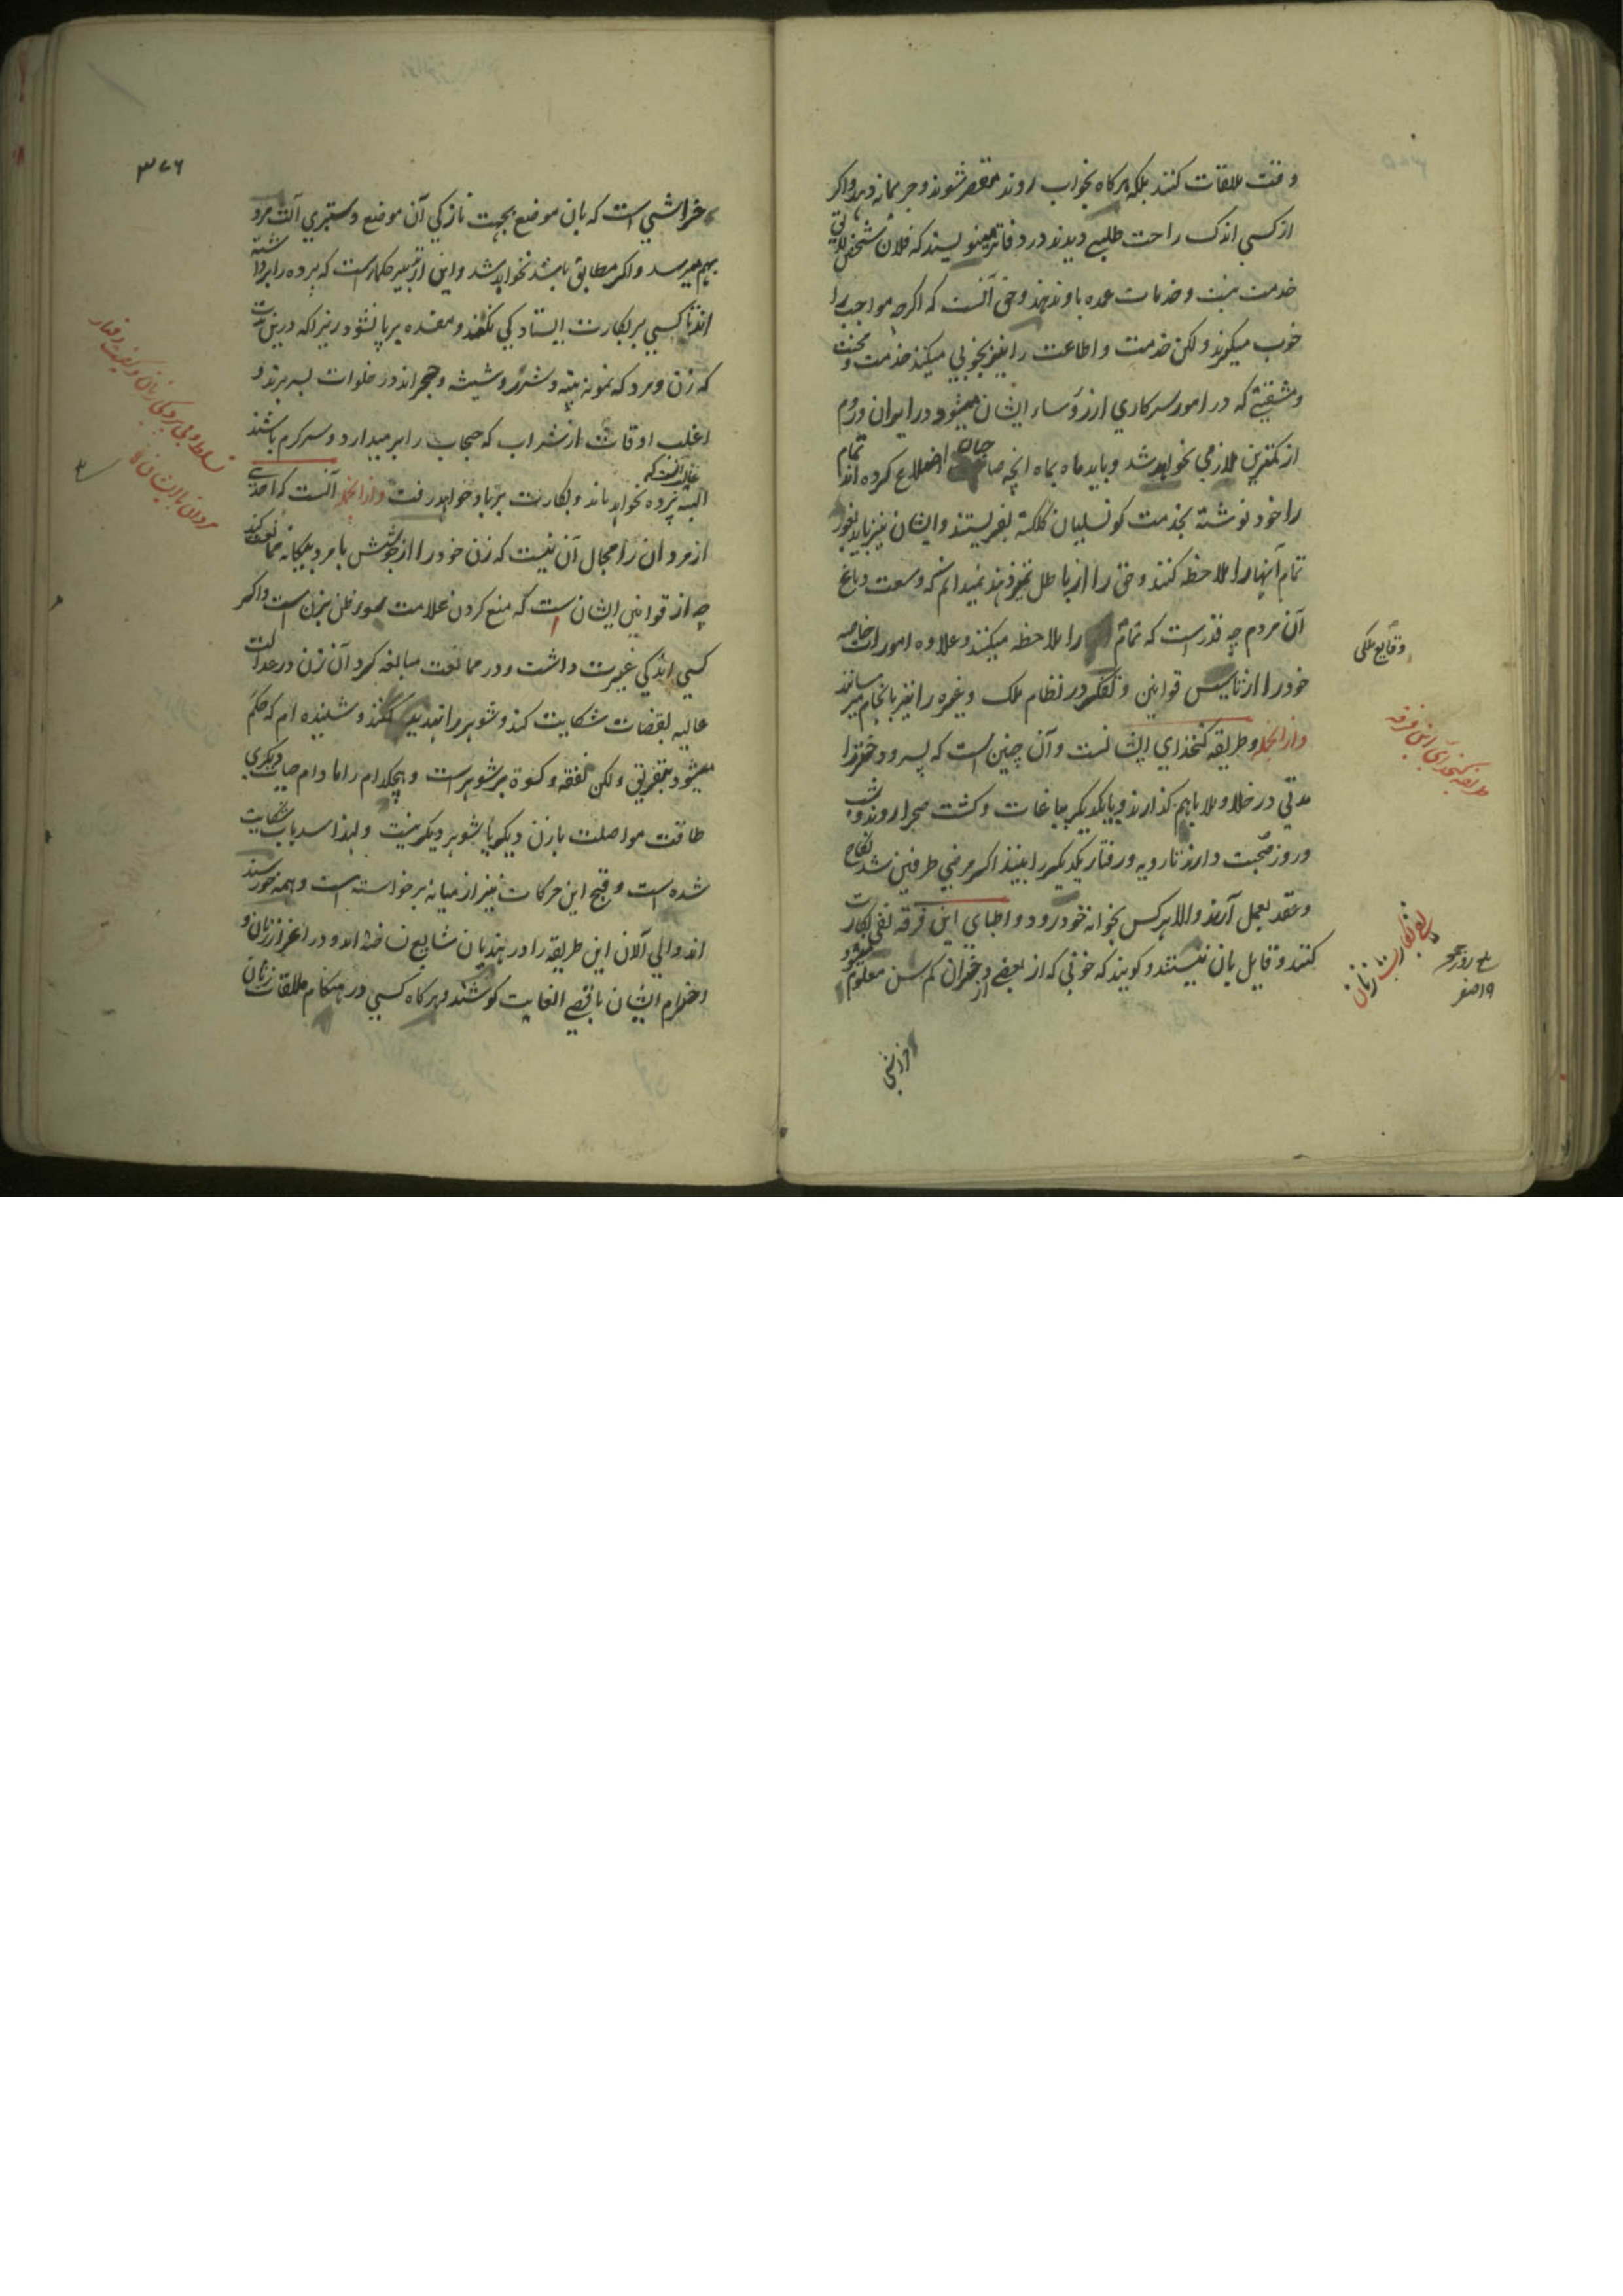 وقت ملاقات کنند بلکه هرکاه بخواب روند مقصر شوند و جریمانه دهند و اکر
از کسی اندک راحت طلبی دیدند در دفاتر مینویسند که فلان شخص لایق
خدمت نیست و خدمات عمده باو ندهند و حق آنست که اکرچه مواجب را
خوب میکیرند ولکن خدمت و اطاعت را نیز بخوبی میکنند خدمت و محنت
و مشقتی که در امور سرکاری از رؤساء ایشان میشود در ایران و روم
از کمترین ملازمی نخواهد شد و باید ماه بماه آنچه صاحبان اضلاع کرده اند تمام
را خود نوشته بخدمت کونسلیان کلکته بفرستند و ایشان نیز باید بغور
تمام آنها را ملاحظه کنند و حق را از باطل تمیز دهند نمیدانم که وسعت دماغ
آن مردم چه قدر است که تمام را ملاحظه میکنند و علاوه امورات خاصه
خود را از تاسیس قوانین و تفکر در نظام ملک و غیره را نیز بانجام میرسانند
وقایع ملکی
وازانجمله طریقه کتخدایی ایشانست و آن چنین است که پسر و دختر را
طریقه کتخدایی این فرقه
مدتی در خلا و ملا باهم کذارند و با یکدیکر بباغات و کشت صحرا روند و شب
و روز صحبت دارند تا رویه و رفتار یکدیکر را ببینند اکر مرضی طرفین شد نکاح
و عقد بعمل آرند والا هرکس بخانه خود رود و اطبای این فرقه نفی بکارت
کنند و قایل بان نیستند و کویند که خونی که از بعضی دختران کم سن معلوم میشود
نفی بکارت زنان
روز
۱۹ صفر
از خراشی
۳۷۶
خراشی است که بان موضع بجهت نازکی آن موضع و ستبری آلت مرد
بهم میرسد و اکر مطابق باشد نخواهد شد و این از تدبیر حکما است که پرده را برداشته
اند تا کسی بر بکارت ایستادکی نکند و مفسده برپا نشود زیرا که درین مدت
که زن و مرد که نمونه پنبه و شرر و شیشه و حجر اند در خلوات بسر برند و
اغلب اوقات از شراب که حجاب را بر میدارد و سرکرم باشند
غالب آنست که
البته پرده نخواهد ماند و بکارت برباد خواهد رفت وازانجمله آنست که احدی
تسلط و بی پردکی زنان و کیفیت رفتار
مردان با ایشان
از مردان را مجال آن نیست که زن خود را از جوشش با مرد بیکانه ممانعت کند
چه از قوانین ایشان است که منع کردن علامت سوء ظن بزن است و اکر
کسی اندکی غیرت داشت و در ممانعت مبالغه کرد آن زن در عدالت
عالیه بقضات شکایت کند و شوهر را تهدید کنند و شنیده ام که حکم
میشود بتفریق ولکن نفقه و کسوة بر شوهر است و هیچکدام را مادام حیات دیکری
طاقت مواصلت با زن دیکر یا شوهر دیکر نیست و لهذا سد باب شکایت
شده است و قبح این حرکات نیز از میانه برخواسته است و همه خورسند
اند و الی آلان این طریقه را در هندیان شایع نساخته اند و در اعزاز زنان و
احترام ایشان باقصی الغایت کوشند و هرکاه کسی در هنکام ملاقات زنان